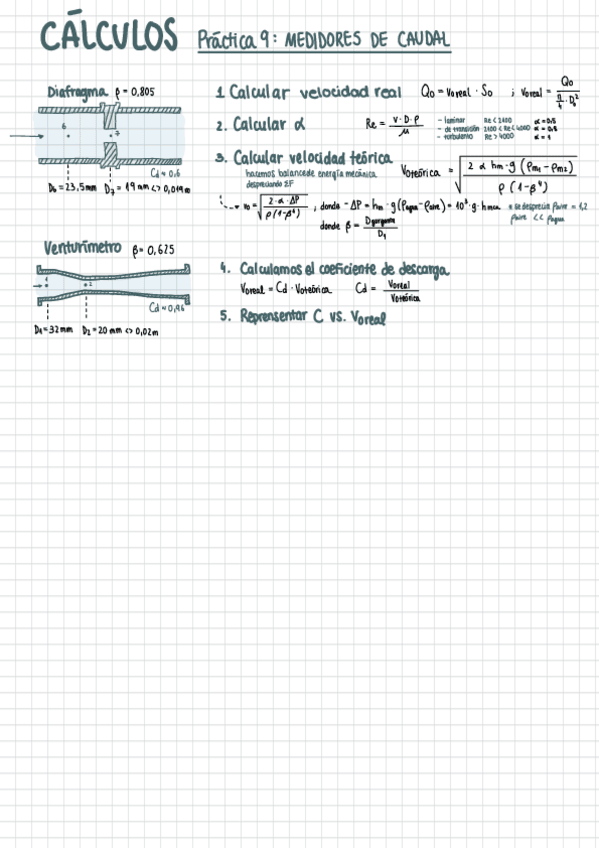 CÁLCULOS Práctica 9: MEDIDORES DE CAUDAL
Diafragma β = 0,805
6
7
Cd ≈ 0.6
D₆ = 23,5mm D₇ = 19 mm <> 0,019 m
Venturímetro β = 0,625
1
2
Cd ≈ 0,96
D₁ = 32mm D₂ = 20 mm <> 0,02m
1 Calcular velocidad real Q₀ = V₀ real · S₀ ; V₀real = Q₀ / (π/4 · D₀²)
2. Calcular α Re = V · D · ρ / μ
- laminar Re < 2100 α = 0,5
- de transición 2100 < Re < 4000 α = 0,8
- turbulento Re > 4000 α = 1
3. Calcular velocidad teórica V₀teórica = √(2 α hm · g (ρm₁ - ρm₂) / ρ (1-β⁴))
hacemos balance de energía mecánica
despreciando ΣF
v₀ = √(2 · α · ΔP / ρ (1-β⁴)) , donde - ΔP = hm · g (ρagua - ρaire) = 10³ · g · hmca * se desprecia ρaire = 1,2
ρaire << ρagua
donde β = Dgarganta / D₁
4. Calculamos el coeficiente de descarga
V₀real = Cd · V₀teórica Cd = V₀real / V₀teórica
5. Reprensentar C vs. V₀real